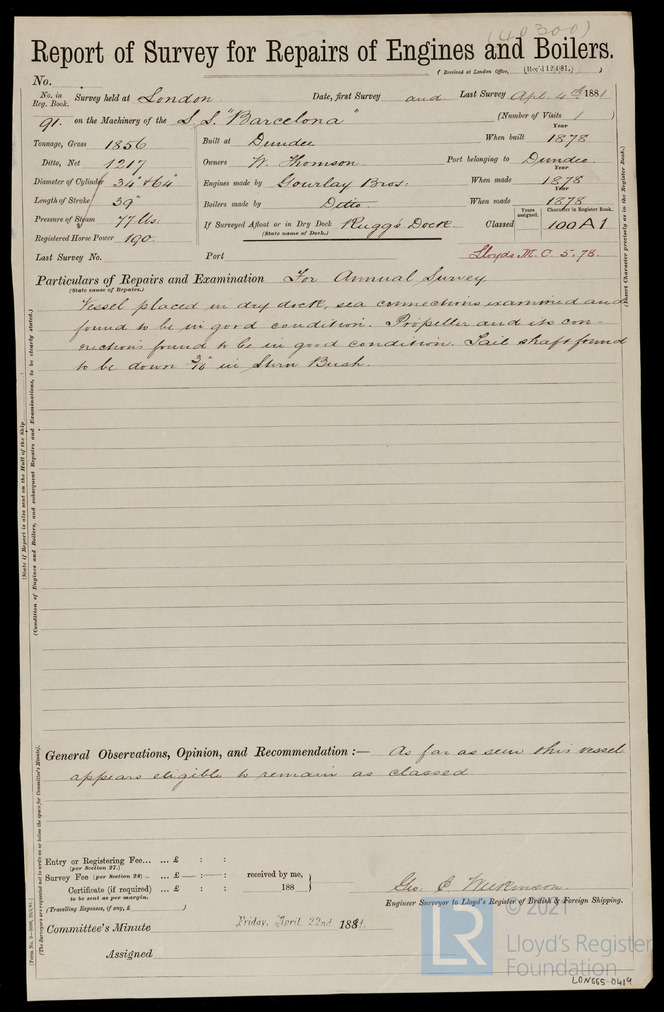 (40300)
Report of Survey for Repairs of Engines and Boilers.
(Received at London Office, (Rec'd 12/4/81.) )
No.
No. in Reg. Book. Survey held at London Date, first Survey and Last Survey Apl. 4th 1881
91. on the Machinery of the S S "Barcelona" (Number of Visits 1 )
Tonnage, Gross 1856 Built at Dundee When built Year 1878
Ditto, Net 1217 Owners W. Thomson Port belonging to Dundee.
Diameter of Cylinder 34" & 64" Engines made by Gourlay Bros: When made Year 1878
Length of Stroke 39" Boilers made by Ditto. When made Year 1878
Pressure of Steam 77 lbs. If Surveyed Afloat or in Dry Dock Rugg's Dock Classed Years assigned. Character in Register Book. 100 A 1
(State name of Dock.)
Registered Horse Power 190.
Last Survey No. Port Lloyds M. C. 5. 78.
Particulars of Repairs and Examination For Annual Survey
(State cause of Repairs.)
Vessel placed in dry dock, sea connections examined and
found to be in good condition. Propeller and its con-
nections found to be in good condition. Tail shaft found
to be down in Stern Bush.
(State if Report is also sent on the Hull of the Ship
(Condition of Engines and Boilers, and subsequent Repairs and Examinations, to be clearly stated.)
(Insert Character precisely as in the Register Book.)
General Observations, Opinion, and Recommendation :— As far as seen this vessel
appears eligible to remain as classed
Entry or Registering Fee... ... £ : :
(per Section 27.)
Survey Fee (per Section 28) ... ... £ — : — :
received by me,
Certificate (if required) ... £ : : 188
to be sent as per margin.
(Travelling Expenses, if any, £ )
Geo. C. Wilkinson.
Engineer Surveyor to Lloyd's Register of British & Foreign Shipping.
Committee's Minute Friday, April 22nd 1881.
Assigned
(The Surveyors are requested not to write on or below the space for Committee's Minute.)
© 2021
LR
Lloyd's Register
Foundation
LON665-0419